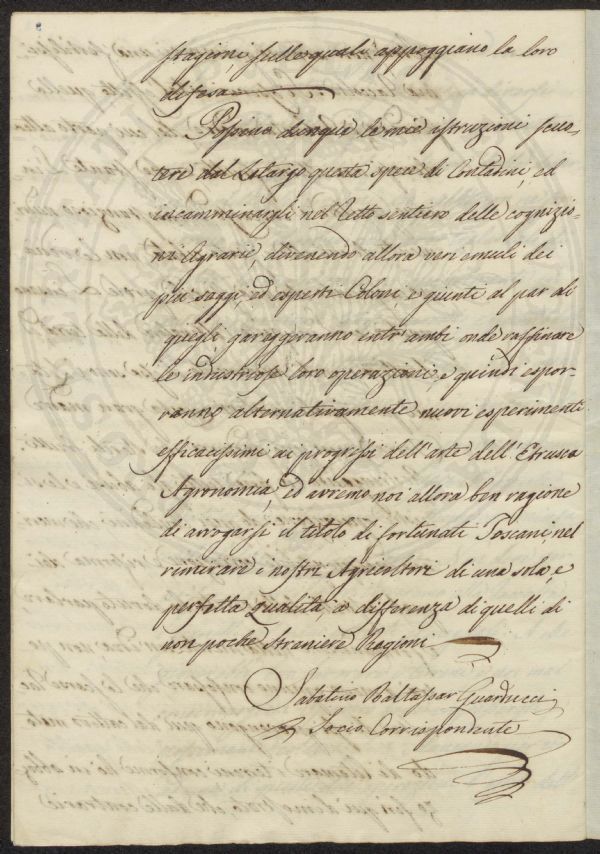 stagioni sulle quali appoggiano la loro
difesa
Possino dunque le mie istruzioni scuo-
tere dal Letargo questa specie di Contadini, ed
incamminargli nel retto sentiero delle cognizio-
ni Agrarie, divenendo allora veri emuli dei
più saggi, ed esperti Coloni, e giunti al par di
quegli gareggeranno entr'ambi onde raffinare
le industriose loro operazioni, e quindi espor-
ranno alternativamente nuovi esperimenti
efficacissimi ai progressi dell'arte dell'Etrusca
Agronomia, ed avremo noi allora ben ragione
di arrogarsi il titolo di fortunati Toscani nel
rimirare i nostri Agricoltori di una sola, e
perfetta qualità, a differenza di quelli di
non poche Straniere Regioni
Sabatino Baltassar Guarducci
Socio Corrispondente